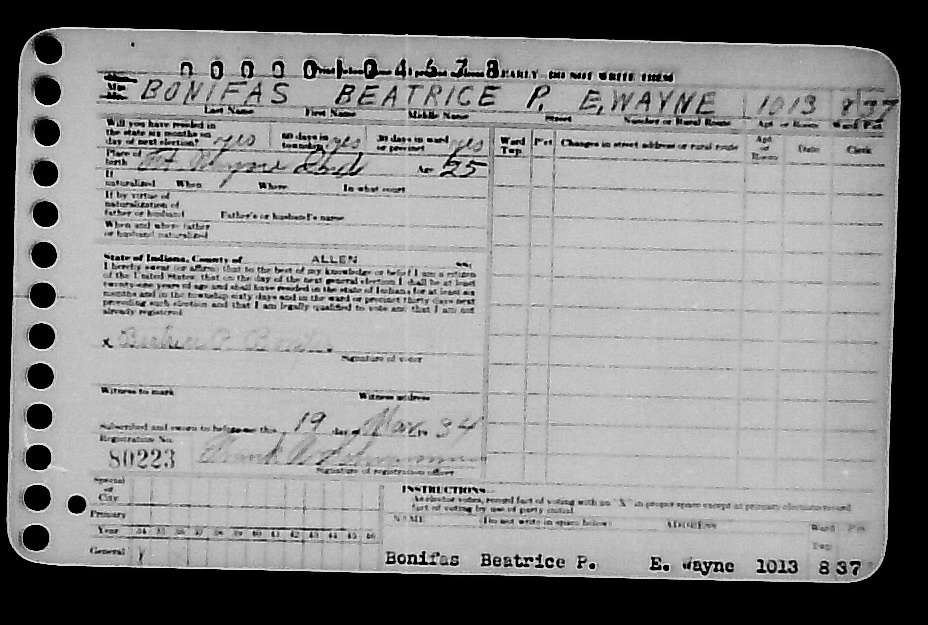 00001 04578
CLEARLY - DO NOT WRITE THEM
Miss
Mrs. BONIFAS BEATRICE P. E. WAYNE 1013 8 37
Last Name First Name Middle Name Street Number or Rural Route Apt. or Room Ward Pct.
Will you have resided in
the state six months on
day of next election? yes 60 days in
township yes 30 days in ward
or precinct yes
Ward
Twp. Pct. Changes in street address or rural route Apt.
or
Room Date Clerk
Place of
birth Ft. Wayne Age 25
If
naturalized When Where In what court
If by virtue of
naturalization of
father or husband Father's or husband's name
When and where father
or husband naturalized
State of Indiana, County of ALLEN ss:
I hereby swear (or affirm) that to the best of my knowledge or belief I am a citizen
of the United States, that on the day of the next general election I shall be at least
twenty-one years of age and shall have resided in the state of Indiana for at least six
months and in the township sixty days and in the ward or precinct thirty days next
preceding such election and that I am legally qualified to vote and that I am not
already registered
x P.
Signature of voter
Witness to mark Witness address
Subscribed and sworn to before me this 19 day of Mar. 19 34
Registration No.
80223 Frank
Signature of registration officer
Special
or
City
Primary
Year 34 35 36 37 38 39 40 41 42 43 44 45 46
General
INSTRUCTIONS
As elector votes, record fact of voting with an "X" in proper space except at primary elections record
fact of voting by use of party initial
NAME (Do not write in space below) ADDRESS Ward Pct.
Twp.
Bonifas Beatrice P. E. Wayne 1013 8 37